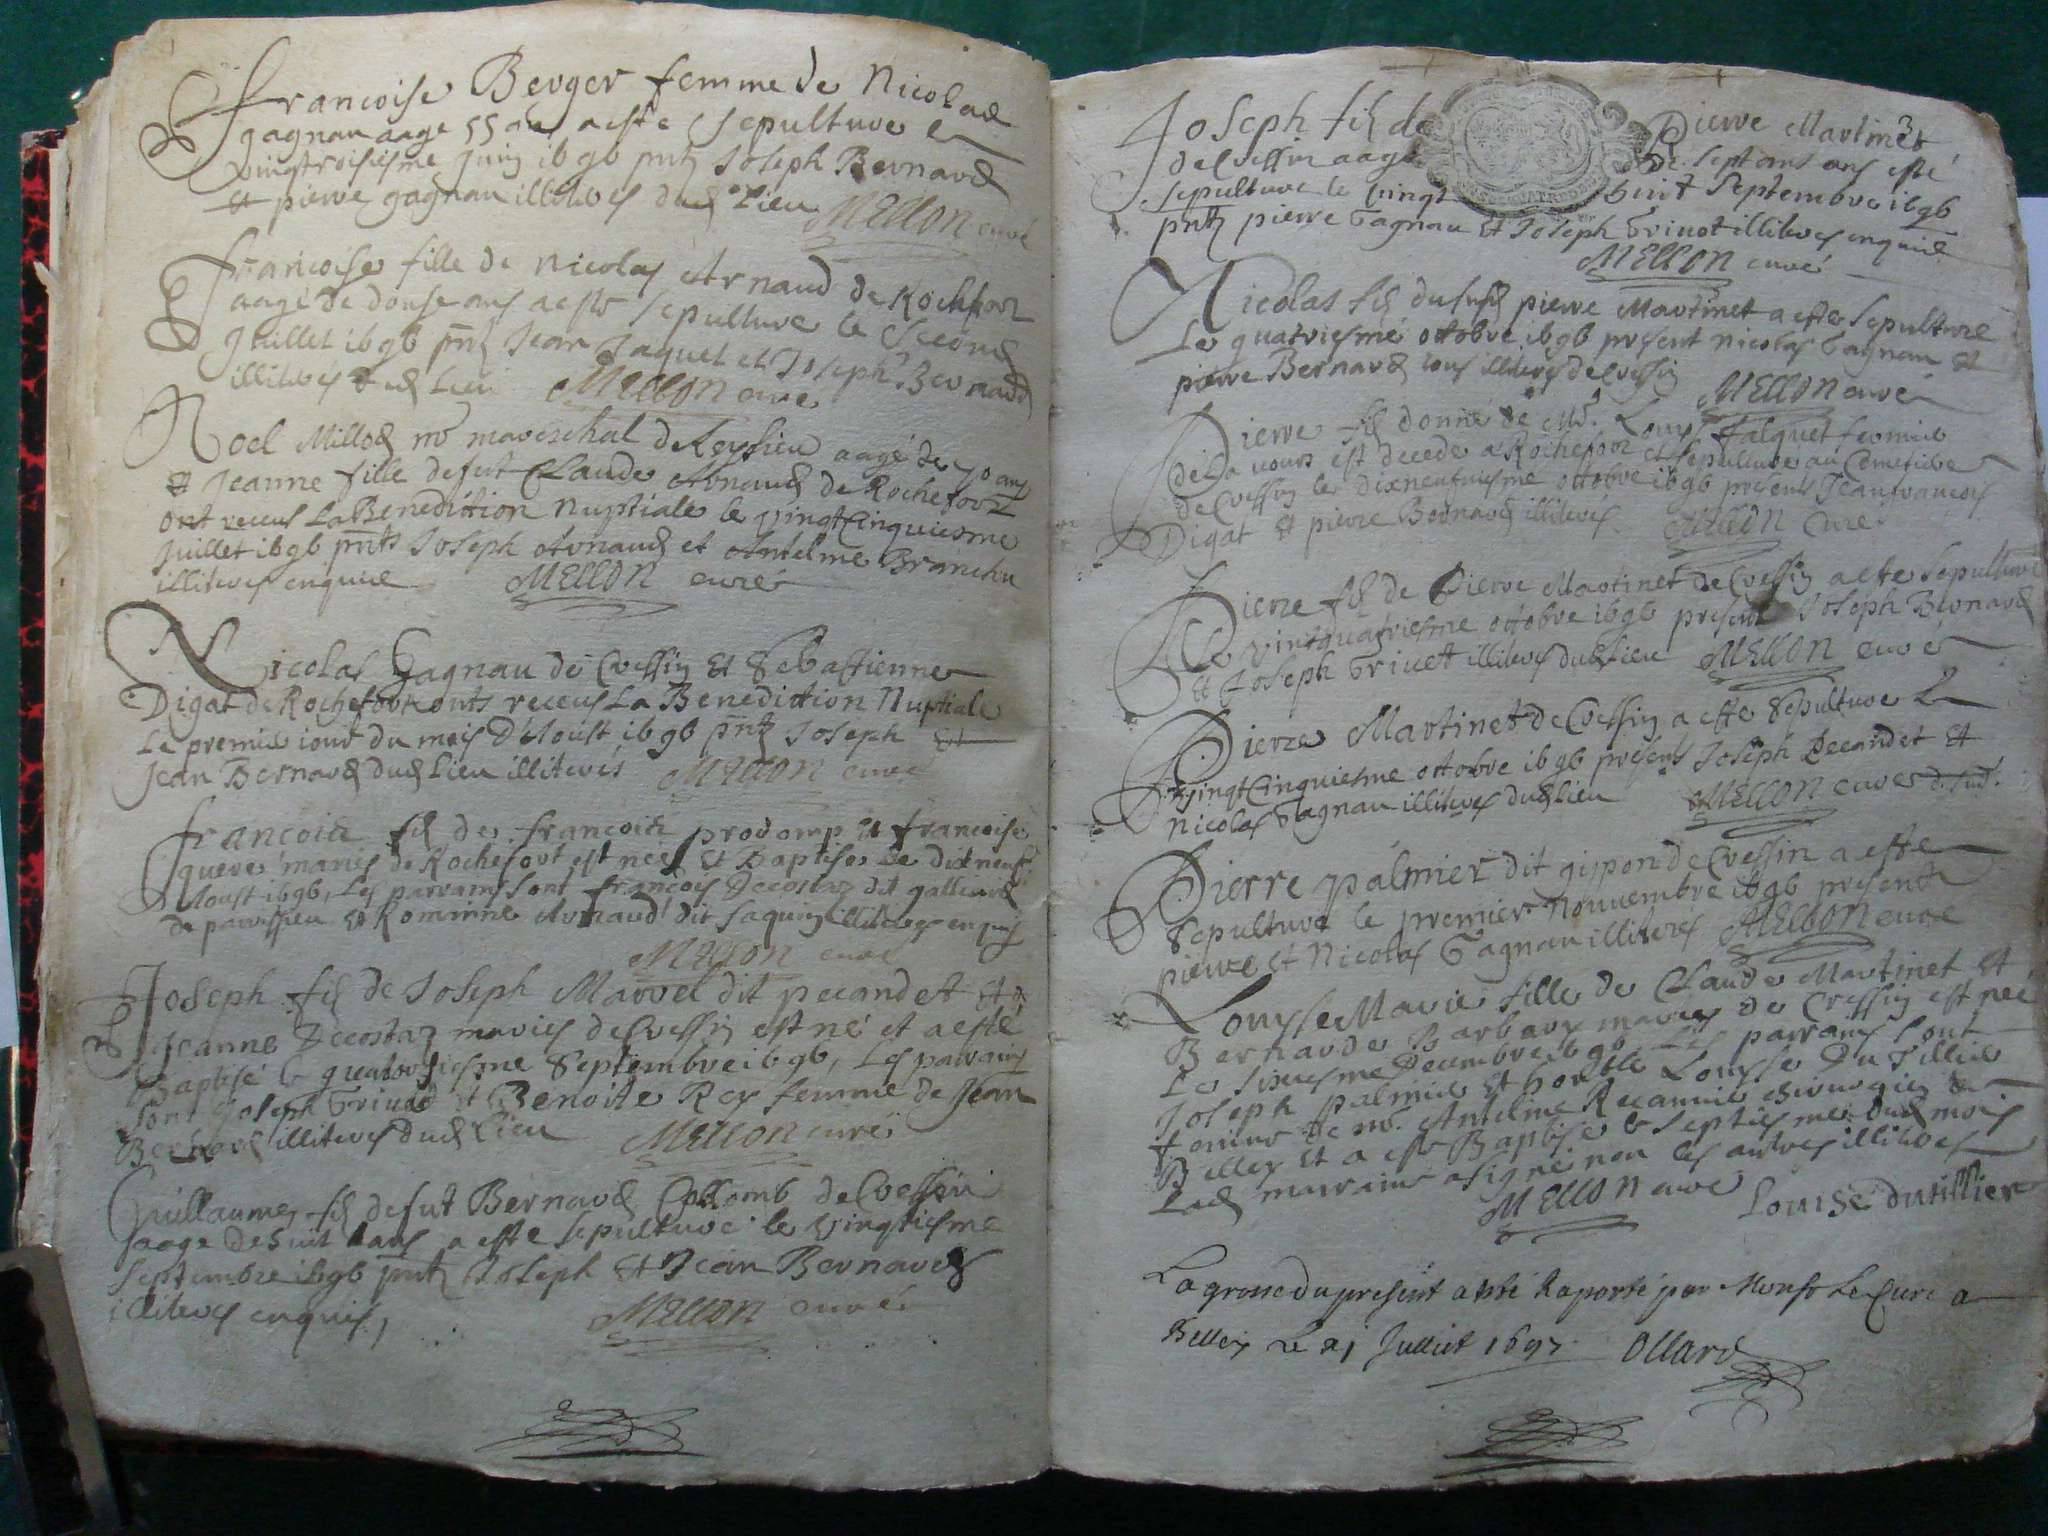 Francoise Berger femme de Nicolas
gagnau aage 55 ans a esté sepulture le
vingtroisiesme Juin i696 pnts Joseph Bernard
Et pierre gagnau illiteres dud Lieu MELLON curé
francoise fille de nicolas Arnaud de Rochefort
aagé de douse ans a esté sepulture le second
Juillet i696 pnts Jean Jaquet et Joseph Bernard
illiteres dud Lieu MELLON curé
Noel Millod me mareschal de Leyssieu aagé de 70 ans
et Jeanne fille de fut Claude Arnaud de Rochefort
ont receus La Benediction Nuptiale le vingt Cinquiesme
Juillet i696 pnts Joseph Arnaud et Antelme Branchu
illiteres enquis MELLON curé
Nicolas Gagnau de Cressin Et Sebastienne
Digat de Rochefort onts receus La Benediction Nuptiale
Le premier iour du mois d'Aoust i696 pnts Joseph Et
Jean Bernard dud Lieu illiterés MELLON curé
francois fils de francois prodomp Et francoise
mariés de Rochefort est nées Et Baptise Le dixneuf
Aoust i696, Les parrains sont francois Decostaz dit galliard
de parissieu Et Romanne Arnaud dit Jaquin illiteres enquis
MELLON curé
Joseph fils de Joseph Marvel dit pecandet Et de
Jeanne Decostaz mariés de Cressin est né et a esté
Baptisé le quatorsiesme Septembre i696, Les parains
sont Joseph Trivet et Benoite Rey femme de Jean
Bernard illiteres dud Lieu MELLON curé
Guillaume fils de fut Bernard Collomb de Cressin
aage de ans a esté sepulture le vingtiesme
Septembre i696 pnts Joseph Et Jean Bernard
illiteres enquis, MELLON curé
Joseph fils de Pierre Martinet
de Cressin aagé de sept ans ans esté
sepulture le vingt Septembre i696
pnts pierre Gagnau Et Joseph Trivet illiteres enquis
MELLON curé
Nicolas fils du susd pierre Martinet a esté sepulture
Le quatriesme octobre i696 present nicolas Gagnau Et
pierre Bernard tous illiteres de Cressin MELLON curé
Pierre fils donné de Mr. Louys falquet fermier
de La est decede a Rochefort et sepulture au Cimetiere
de Cressin le dixneufviesme octobre i696 presents Jean francois
Digat Et pierre Bernard illiterés MELLON Curé
Pierre fils de Pierre Martinet de Cressin a esté Sepulture
Le vintquatriesme octobre i696 present Joseph Bernard
et Joseph Trivet illiteres dud Lieu MELLON curé
Pierre Martinet de Cressin a esté Sepulture Le
vingt Cinquiesme octobre i696 presents Joseph Pecandet Et
nicolas Gagnau illiteres dud Lieu MELLON curé
Pierre palmier dit gippon de Cressin a esté
Sepulture le premier Nouvembre i696 presents
pierre et Nicolas Gagnau illiterés MELLON curé
Louyse Marie fille de Claude Martinet Et
Bernarde Barbary mariés de Cressin est née
Le sixiesme Decembre i696 Les parrains sont
Joseph palmier Et honble Louyse Du Tillier
femme de mr. Antelme Recamier chirurgien de
Belley Et a esté Baptisée le septiesme dud mois
Lad marraine a signé non les autres illiteres
MELLON curé Louise dutillier
La grosse du present a esté Raporté par Monsr Le Curé a
Belley Le 21 Juillet 1697. Ollard